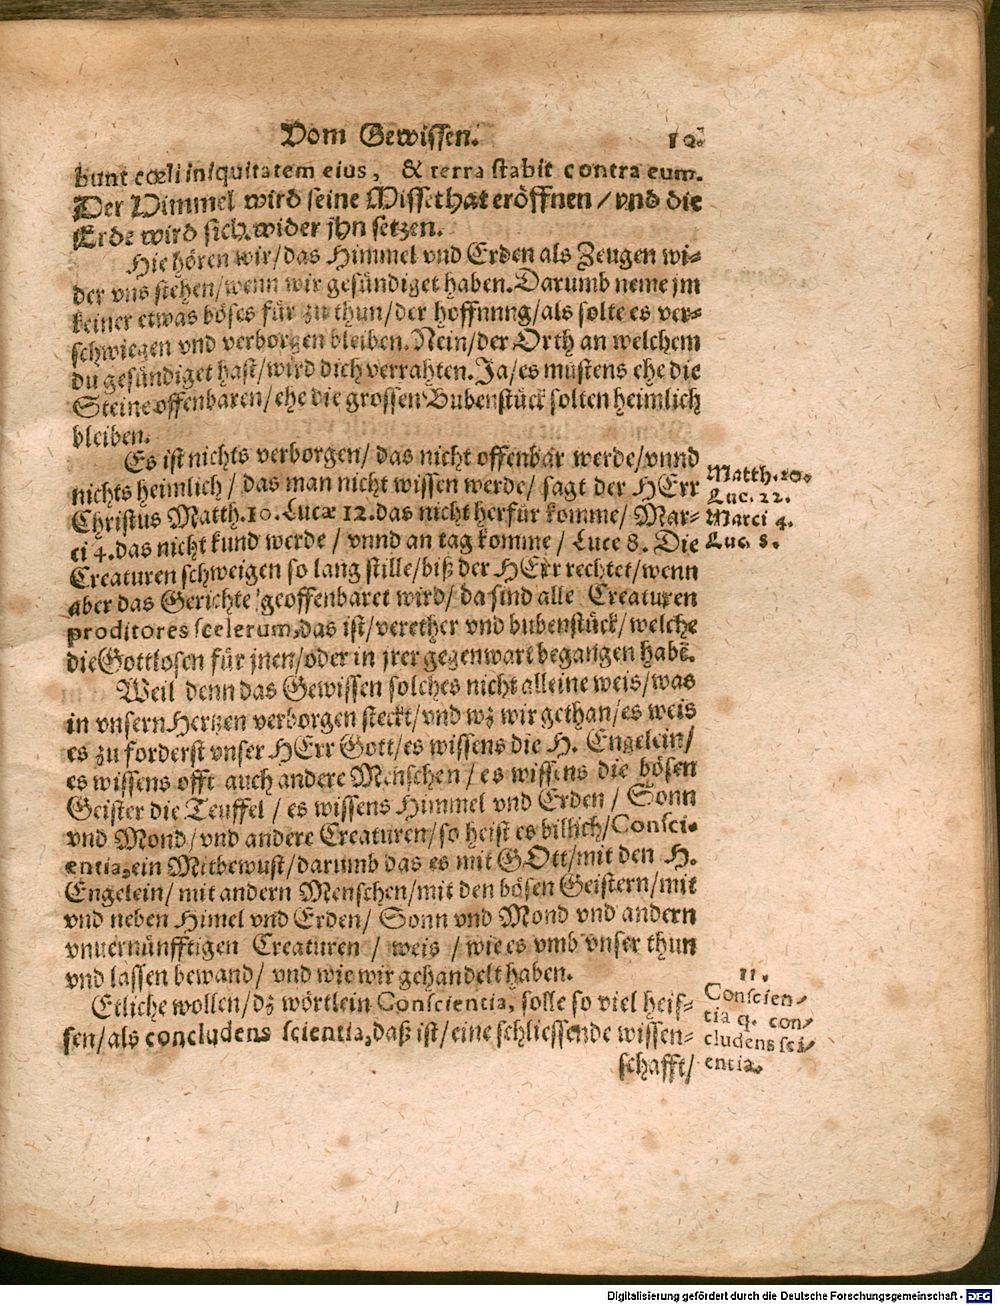 Vom Gewissen. 19.
bunt cœli iniquitatem eius, & terra stabit contra eum.
Der Himmel wird seine Missethat eröffnen / vnd die
Erde wird sich wider jhn setzen.
Hie hören wir / das Himmel vnd Erden als Zeugen wi⸗
der vns stehen / wenn wir gesündiget haben. Darumb neme jm
keiner etwas böses für zu thun / der hoffnung / als solte es ver⸗
schwiegen vnd verborgen bleiben. Nein / der Orth an welchem
du gesündiget hast / wird dich verrahten. Ja / es müstens ehe die
Steine offenbaren / ehe die grossen Bubenstück solten heimlich
bleiben.
Es ist nichts verborgen / das nicht offenbar werde / vnnd
nichts heimlich / das man nicht wissen werde / sagt der HErr
Christus Matth. 10. Lucæ 12. das nicht herfür komme / Mar⸗
ci 4. das nicht kund werde / vnnd an tag komme / Luce 8. Die
Creaturen schweigen so lang stille / biß der HErr rechtet / wenn
aber das Gerichte geoffenbaret wird / da sind alle Creaturen
proditores scelerum, das ist / verether vnd bubenstück / welche
die Gottlosen für jnen / oder in jrer gegenwart begangen habẽ.
Matth. 10.
Luc. 22.
Marci 4.
Luc. 8.
Weil denn das Gewissen solches nicht alleine weis / was
in vnsern Hertzen verborgen steckt / vnd wz wir gethan / es weis
es zu forderst vnser HErr Gott / es wissens die H. Engelein /
es wissens offt auch andere Menschen / es wissens die bösen
Geister die Teuffel / es wissens Himmel vnd Erden / Sonn
vnd Mond / vnd andere Creaturen / so heist es billich / Consci-
entia, ein Mitbewust / darumb das es mit GOtt / mit den H.
Engelein / mit andern Menschen / mit den bösen Geistern / mit
vnd neben Himel vnd Erden / Sonn vnd Mond vnd andern
vnuernünfftigen Creaturen / weis / wie es vmb vnser thun
vnd lassen bewand / vnd wie wir gehandelt haben.
Etliche wollen / dz wörtlein Conscientia, solle so viel heis⸗
sen / als concludens scientia, daß ist / eine schliessende wissen⸗
schafft /
11.
Conscien-
tia q. con-
cludens sci-
entia.
Digitalisierung gefördert durch die Deutsche Forschungsgemeinschaft - DFG